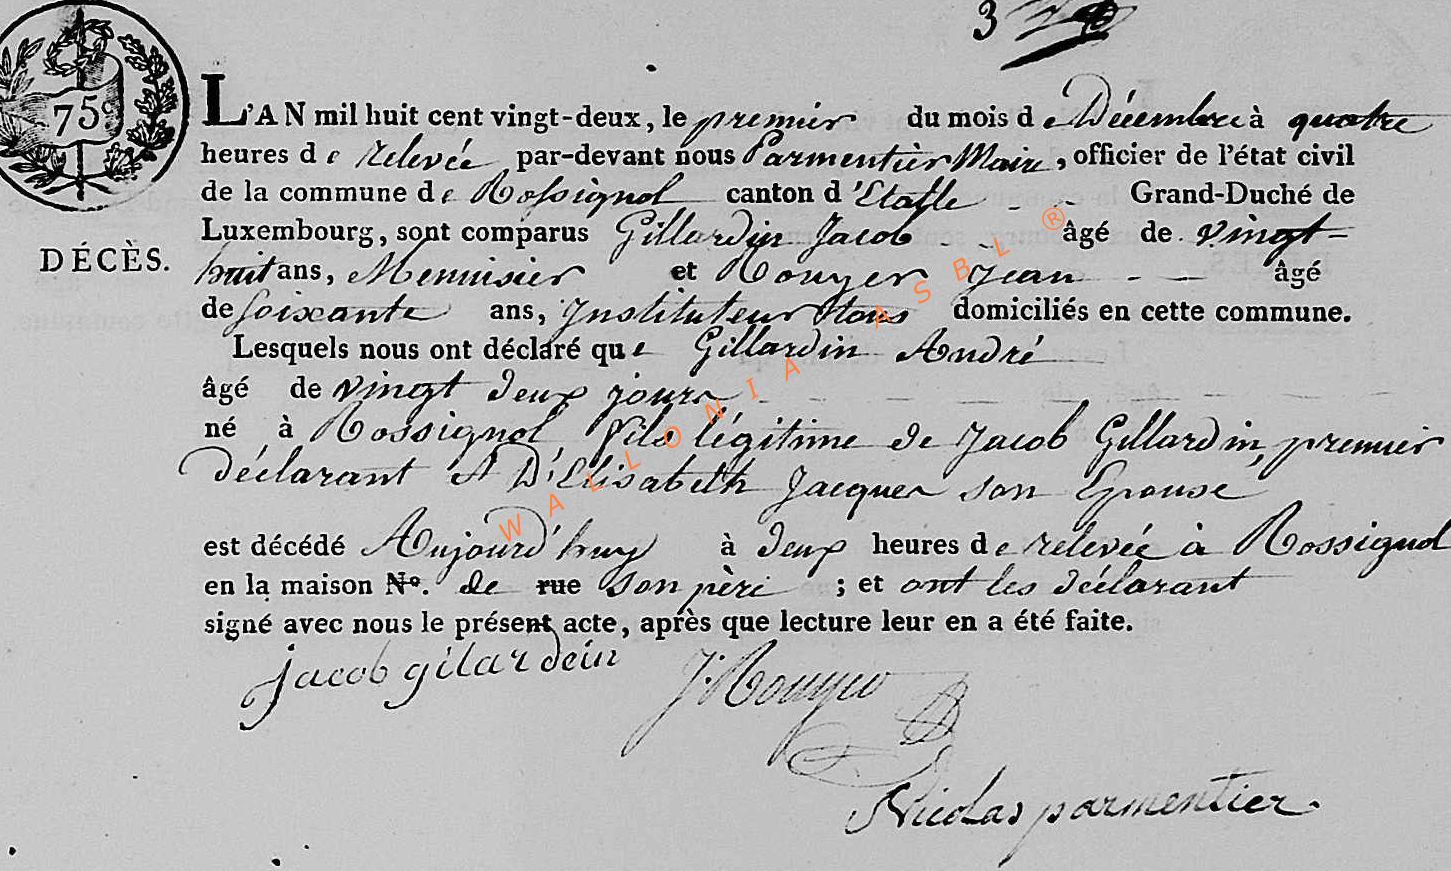 3
75c
L'AN mil huit cent vingt-deux, le premier du mois de Décembre à quatre
heures de relevée par-devant nous Parmentier Maire, officier de l'état civil
de la commune de Rossignol canton d'Etalle - - Grand-Duché de
Luxembourg, sont comparus Gillardin Jacob - - âgé de vingt-
DÉCÈS.
huit ans, Menuisier et Rouyer Jean - - âgé
de soixante ans, Instituteur tous domiciliés en cette commune.
Lesquels nous ont déclaré que Gillardin André
âgé de vingt deux jours
né à Rossignol, fils légitime de Jacob Gillardin, premier
déclarant et D'Elisabeth Jacques son Epouse
est décédé Aujourd'huy à deux heures de relevée à Rossignol
en la maison No. de rue son père ; et ont les déclarant
signé avec nous le présent acte, après que lecture leur en a été faite.
jacob gilardein J: Rouyer
Nicolas parmentier
WALLONIA ASBL ®